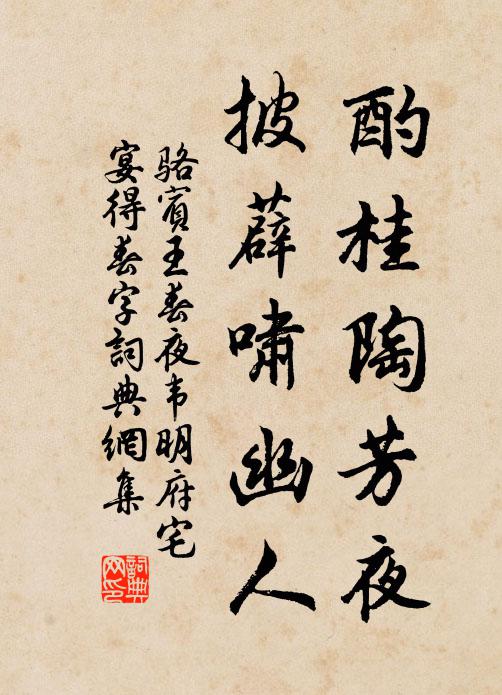 酌桂陶芳夜
披薜嘯幽人
駱賓王春夜韦明府宅
宴得春字詞典網集
詞典
网印